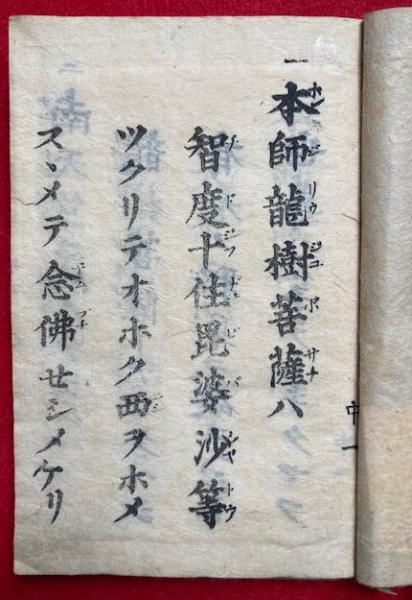 一
本師龍樹菩薩ハ
智度十住毘婆沙等
ツクリテオホク西ヲホメ
スヽメテ念佛セシメケリ
中一